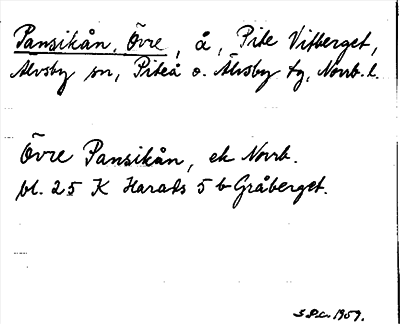 Pansikån, Övre, å, Pite Vitberget,
Älvsby sn, Piteå o. Älvsby tg, Norrb. l.
Övre Pansikån, ek Norrb.
bl. 25 K Harads 5 b Gråberget.
1959.